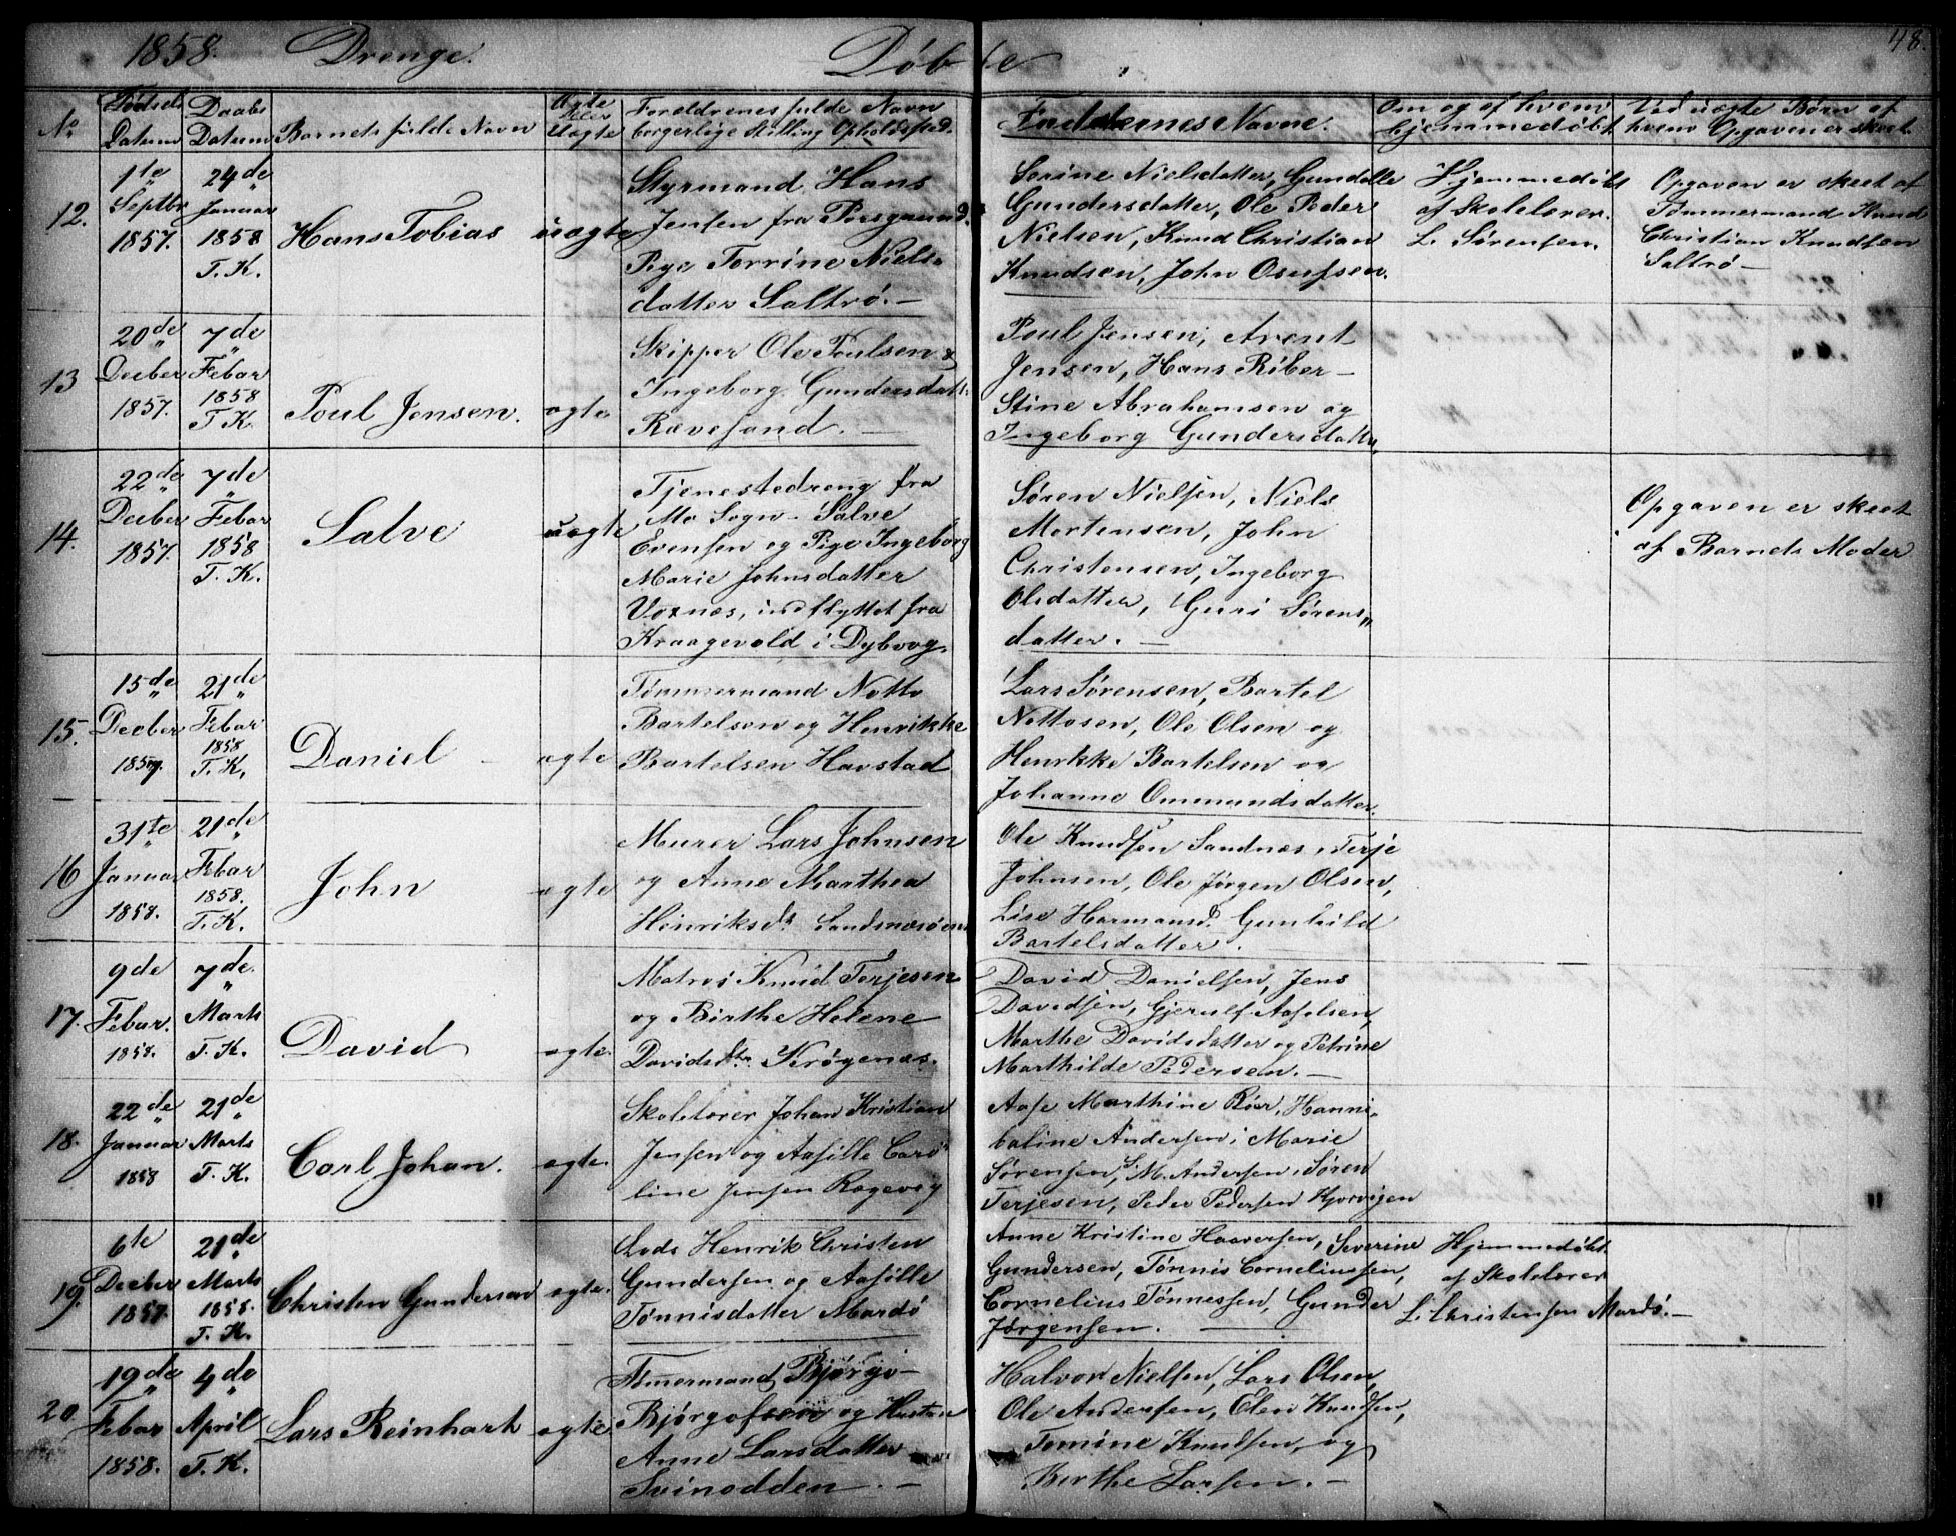 1858. Drenge. Døbte
48.
No
Fødsels Datum
Daabs Datum
Barnets fulde Navn
Ægte eller Uægte
Forældrenes fulde Navn
borgerlige Stilling Opholdssted.
Faddernes Navne.
Om og af hvem
hjemmedøbt
Ved uægte Børn af
hvem Opgaven er skeet.
12.
1ste Septbr 1857.
24de Januar 1858 T. K.
Hans Tobias
uægte
Styrmand Hans
Jensen fra Porsgrund.
Pige Torrine Niels-
datter Saltrø. —
Serine Nielsdatter, Gundelle
Gundersdatter, Ole Peder
Nielsen, Knud Christian
Knudsen, John Osufsen.
Hjemmedøbt
af Skolelærer.
L. Sørensen.
Opgaven er skeet af
Tømmermand Knud
Christian Knudsen
Saltrø —
13
20de Decber 1857.
7de Febar 1858 T. K.
Poul Jensen.
ægte
Skipper Ole Poulsen &
Ingeborg Gundersdatt.
Rævesand. —
Poul Jensen, Arent
Jensen, Hans Riber —
Stine Abrahamsen og
Ingeborg Gundersdatter,
14.
22de Decber 1857.
7de Febar 1858 T. K.
Salve
uægte
Tjenestedreng fra
Mo Sogn - Salve
Evensen og Pige Ingeborg
Marie Johnsdatter
Voxnæs, indflyttet fra
Kraagevold i Dybvog.
Søren Nielsen, Niels
Mortensen, John
Christensen, Ingeborg
Olsdatter, Guri Sørens„
datter. —
Opgaven er skeet
af Barnets Moder
15.
15de Decber 1857.
21de Febar 1858 T. K.
Daniel
ægte
Tømmermand Notto
Bartelsen og Henrikke
Bartelsen Havstad
Lars Sørensen, Bartel
Nottosen, Ole Olsen og
Henrkke Bartelsen og
Johanne Ommundsdatter.
16
31te Januar 1858.
21de Febar 1858. T. K.
John
ægte
Murer Lars Johnsen
og Anne Marthea
Henriksdt. Sandnæsøen
Ole Knudsen Sandnæs, Terje
Johnsen, Ole Jørgen Olsen,
Lise Hermansd. Gunhild
Bartelsdatter.
17.
9de Febar. 1858.
7de Marts T. K.
David
ægte.
Matros Knud Terjesen
og Birthe Helene
Davidsdtr. Krøgenæs.
David Danielsen, Jens
Davidsen, Gjerulf Aaselsen,
Marthe Davidsdatter og Petrine
Marthilde Pedersen. —
18.
22de Januar 1858
21de Marts T. K.
Carl Johan.
ægte.
Skolelærer Johan Kristian
Jensen og Aasille Caro
line Jensen Rægevig
Aase Marthine Riber, Hanni-
baline Andersen, Marie
Sørensen, S. M. Andersen, Søren
Terjesen, Peder Pedersen Kjorvigen
19.
6te Decber 1857.
21de Marts 1858. T. K.
Christen Gundersen
ægte.
Lods Henrik Christen
Gundersen og Aasille
Tønnisdatter Mærdø
Anne Kristine Haaversen, Severine
Gundersen, Tønnis Corneliussen,
Cornelius Tønnessen, Gunder
Jørgensen. —
Hjemmedøbt
af Skolelærer
L. Christensen Mærdø. —
20
19de Febar 1858.
4de April T. K.
Lars Reinhart
ægte
Tømmermand Bjørgo-
Bjørgofsen og Hustru
Anne Larsdatter
Svinodden. —
Halvor Nielsen, Lars Olsen,
Ole Andersen, Elen Knudsen,
Tomine Knudsen, og
Berthe Larsen. —